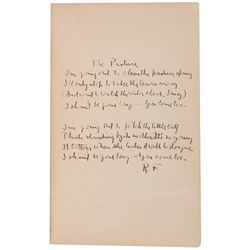 The Pasture
I'm going out to clean the pasture spring
I'll only stop to rake the leaves away
(And wait to watch the water clear, I may)
I shan't be gone long — You come too.
I'm going out to fetch the little calf
That's standing by its mother. It's so young
It totters when she licks it with her tongue
I shan't be gone long — You come too.
R. F.